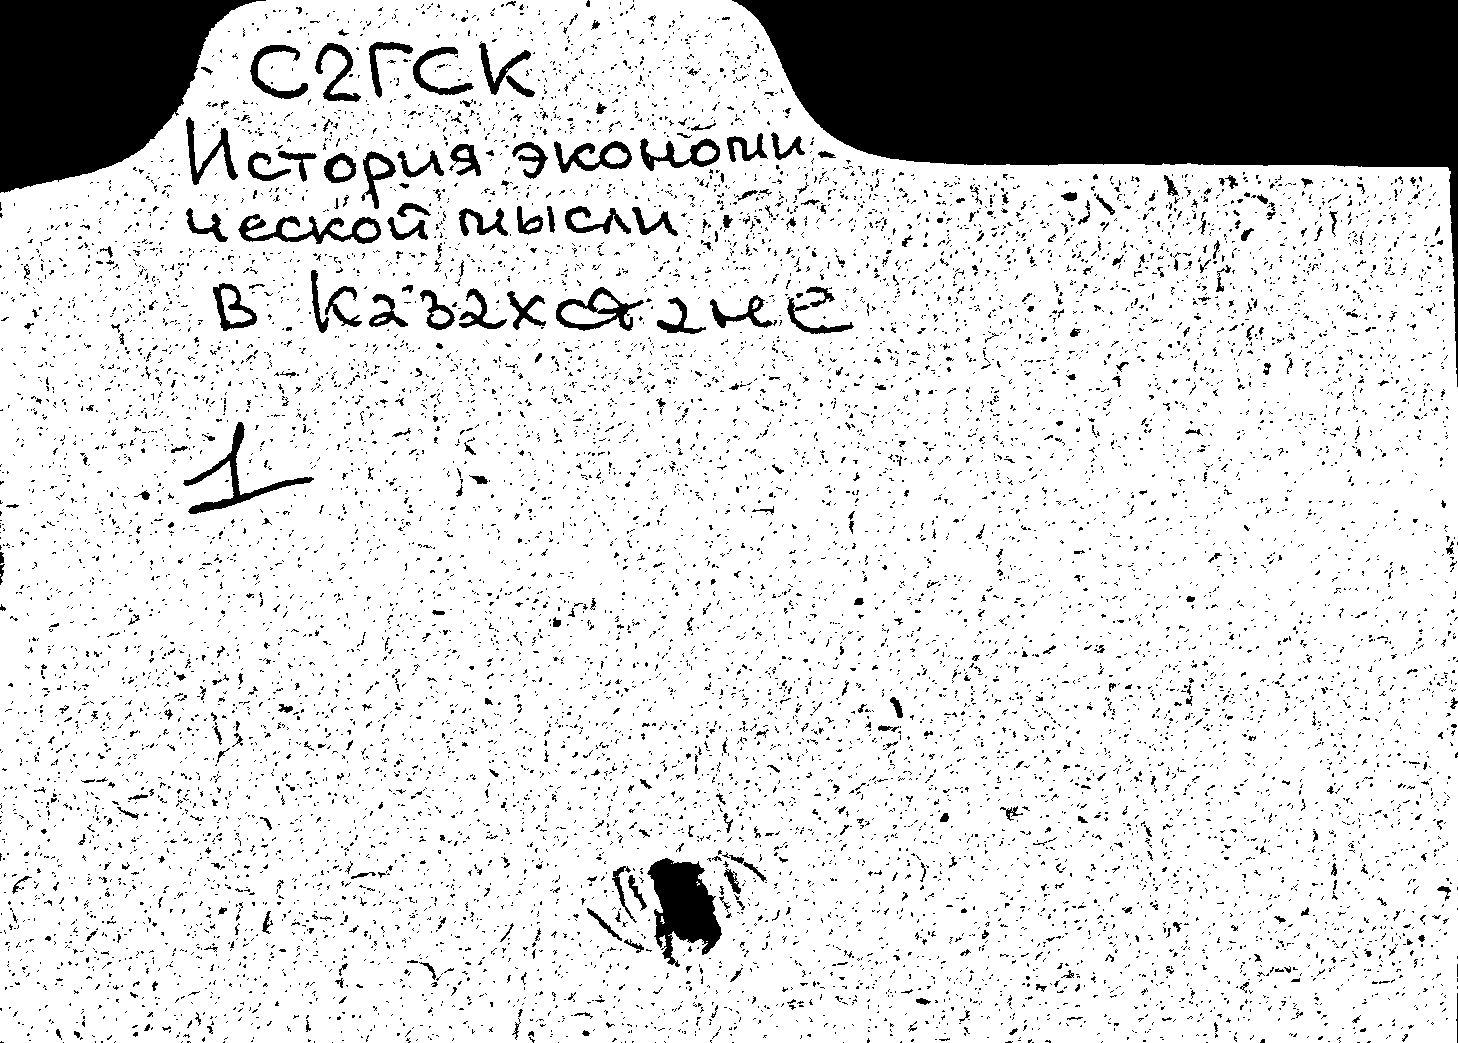 С2ГСК
История экономи-
ческой мысли
в Казахстане
1